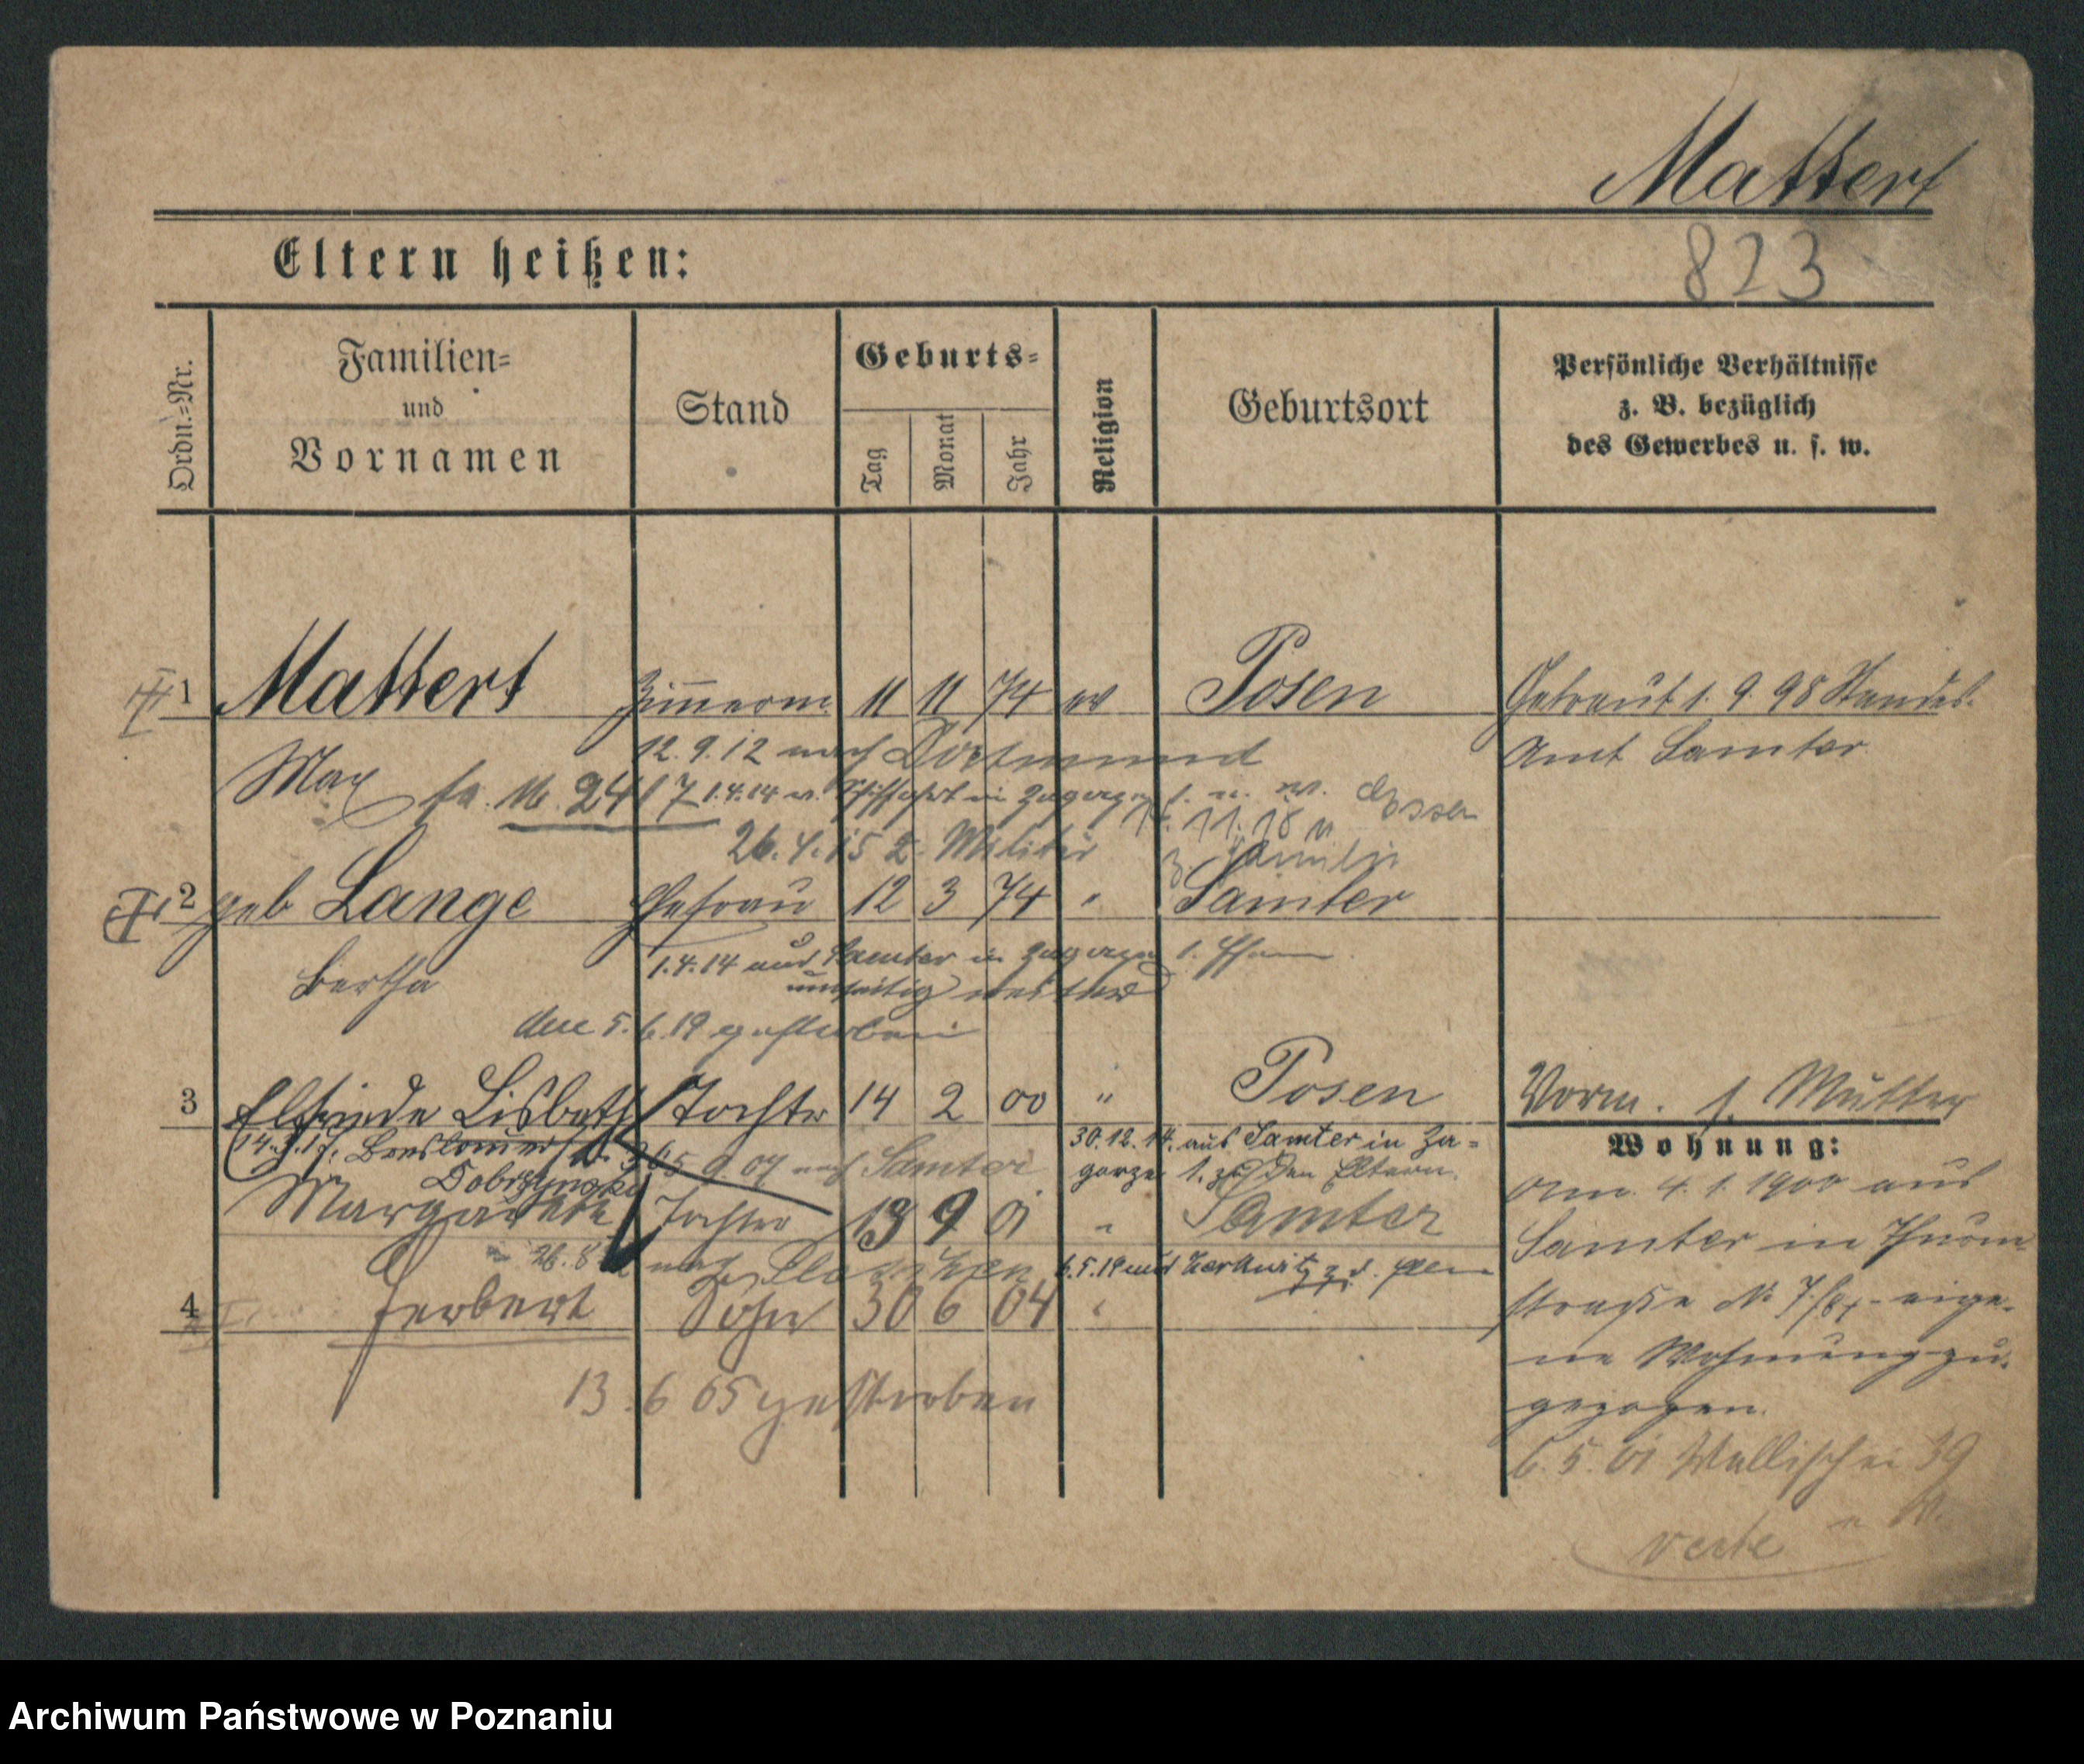 Mattert
823
Eltern heißen:
Ordn.=Nr.
Familien=
und
Vornamen
Stand
Geburts=
Tag
Monat
Jahr
Religion
Geburtsort
Persönliche Verhältnisse
z. B. bezüglich
des Gewerbes u. s. w.
1 Mattert Zimmerm. 11 11 74 ev Posen Getraut 1. 9. 98 Standes-
12. 9. 12 nach Dortmund Amt Samter.
Max 2417 1.4.14 v. in Zagorze Essen
26.4.15 z. Militär 11.18
z. Familie
2 geb Lange Ehefrau 12 3 74 " Samter
1.4.14 aus Samter in Zagorze 1.
Bertha
den 5.6.19 gestorben
3 Elfriede Lisbeth Tochter 14 2 00 " Posen Vorm. s. Mutter
Wohnung:
Breslauerstr.
Dobrzynski
5 9.07 nach Samter
30.12.14. aus Samter in Za=
gorze 1. zu den Eltern.
Margarete Tochter 13 9 01 " Samter
26.8. nach
6.5.19 z. d.
4 Herbert Sohn 30 6 04 "
13.6 05 gestorben
am 4. 1. 1900 aus
Samter in Thurm
straße № 7/8 eige-
ne Wohnung zu-
gezogen.
6. 5. 01 Wallischei 39
verte
Archiwum Państwowe w Poznaniu